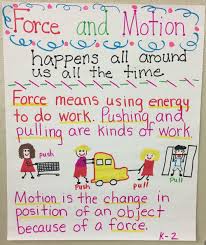 Force and Motion
happens all around
us all the time.
Force means using energy
to do work. Pushing and
pulling are kinds of work.
push
Push
Pull
Pull
Motion is the change in
position of an object
because of a force.
K-2